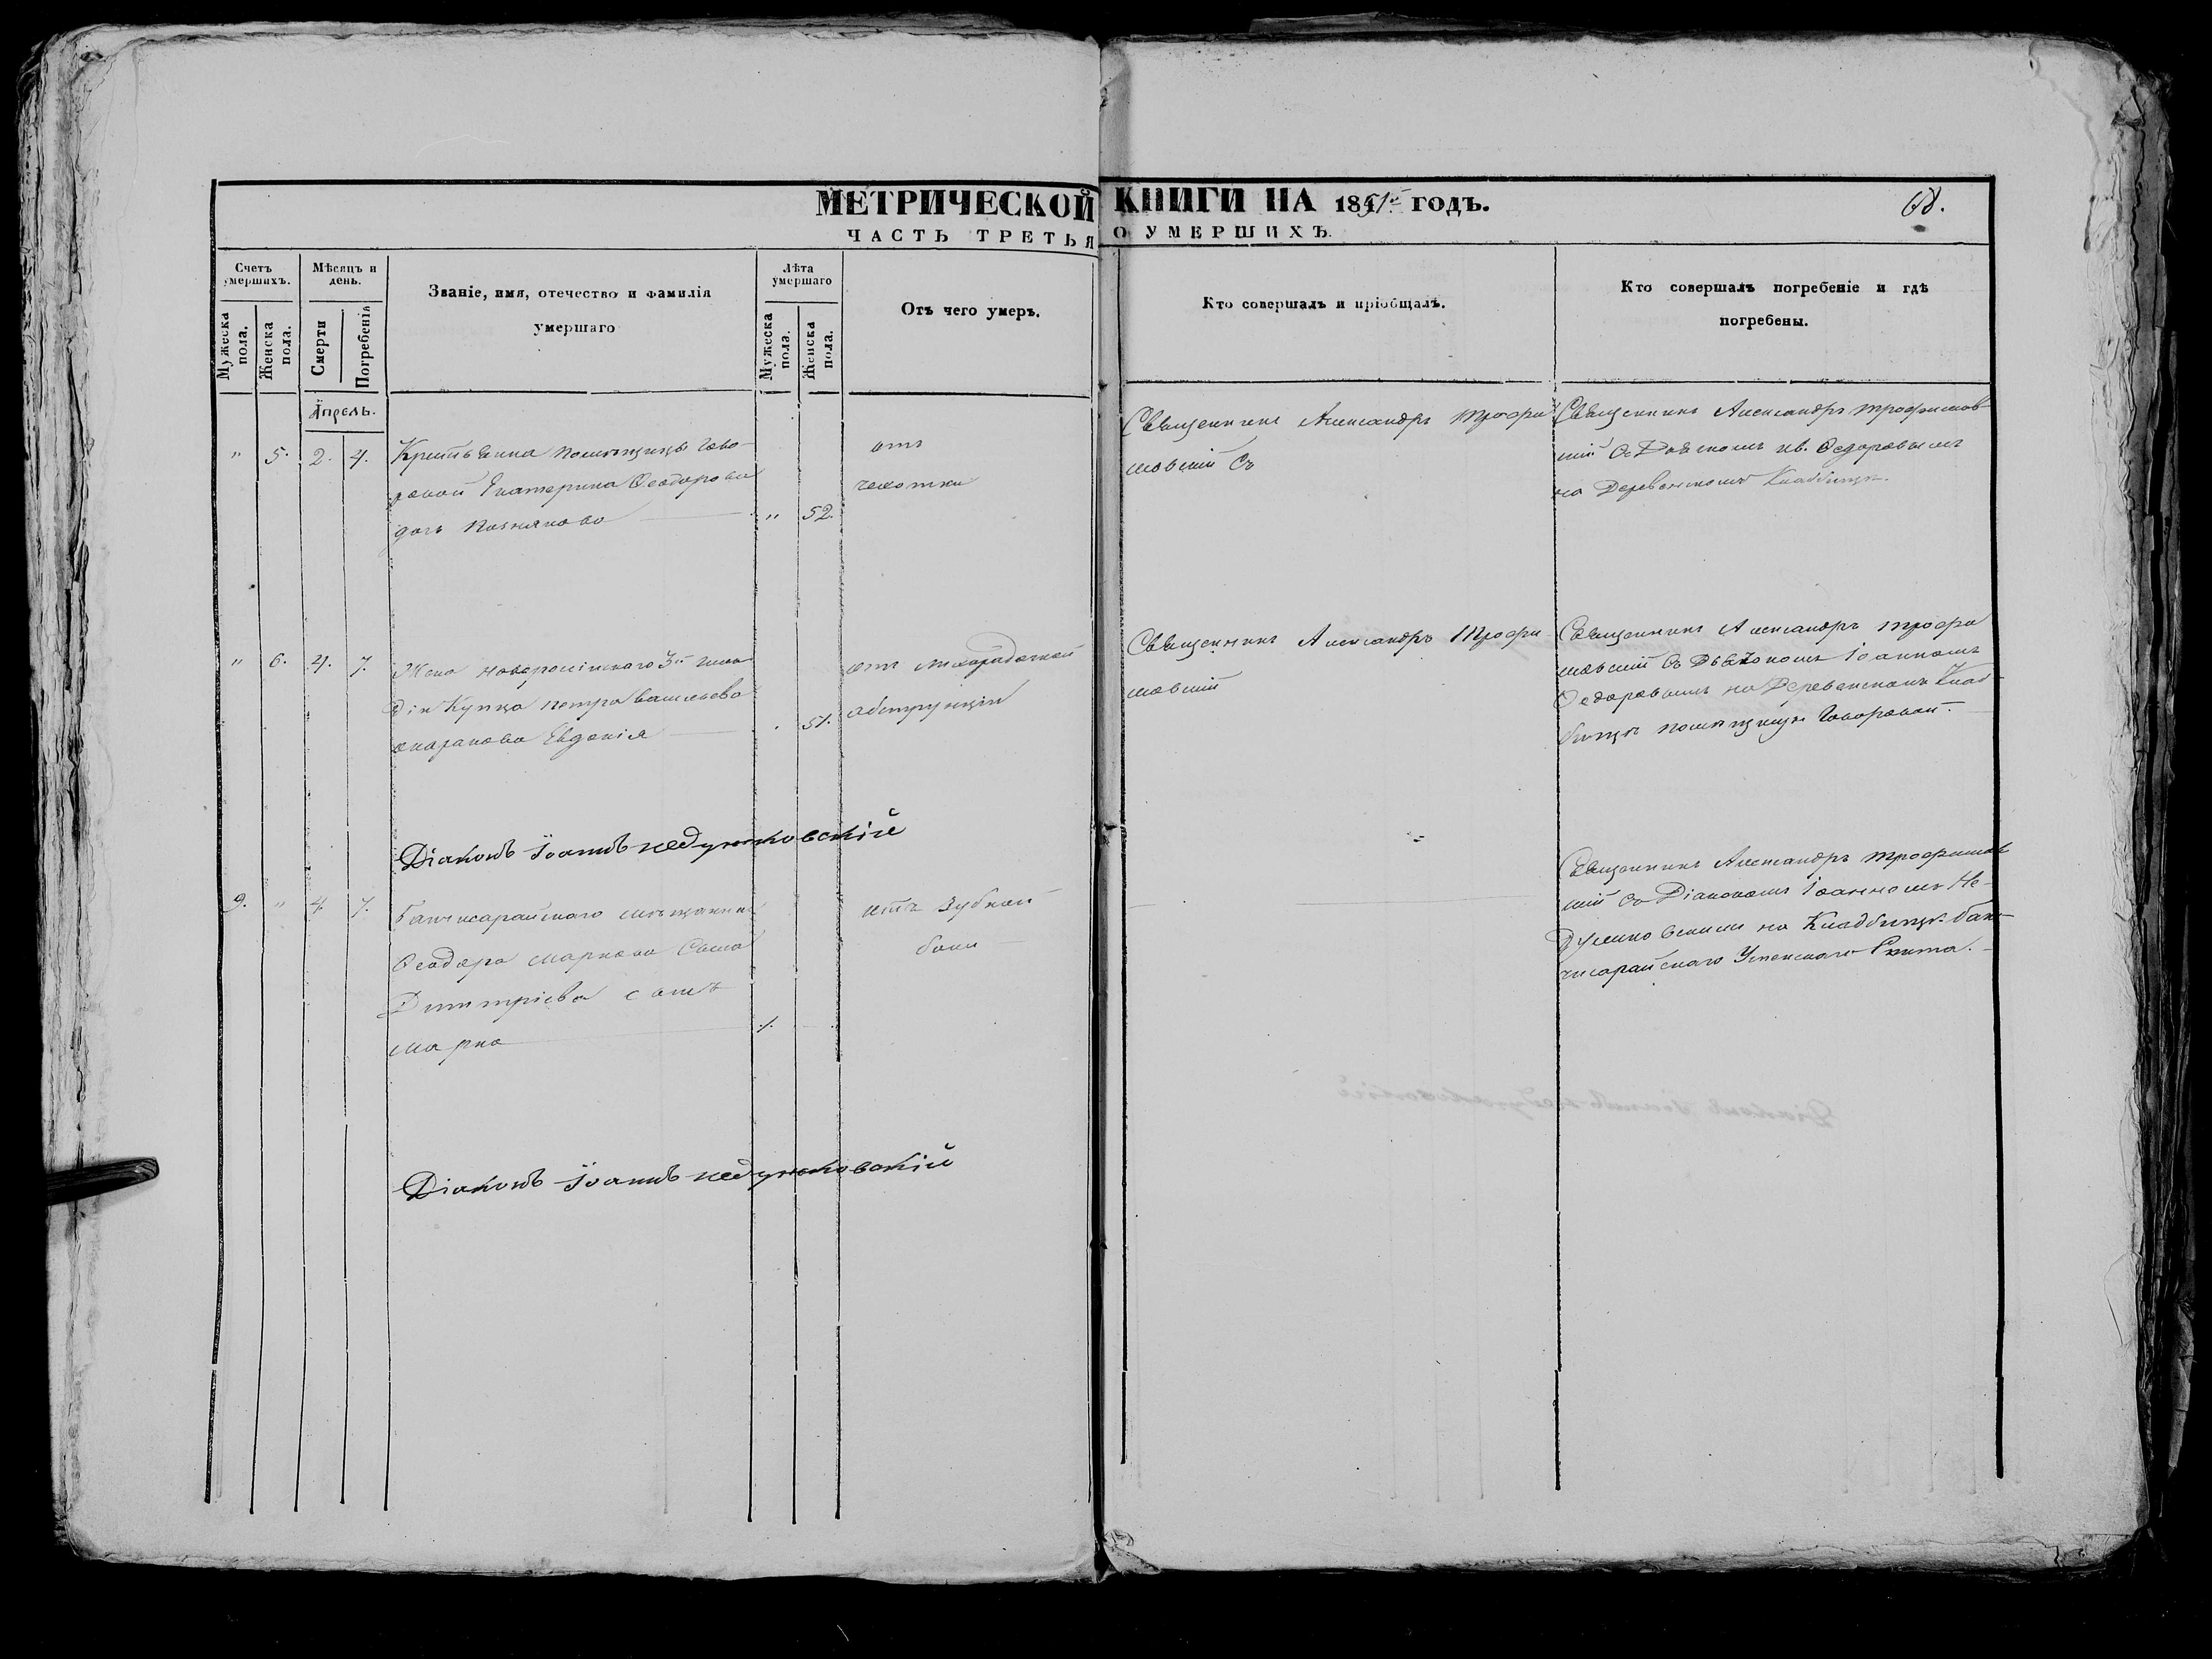 МЕТРИЧЕСКОЙ КНИГИ НА 1851й ГОДЪ.
68.
ЧАСТЬ ТРЕТЬЯ О УМЕРШИХЪ.
Счетъ умершихъ.
Мужеска пола.
Женска пола.
Мѣсяцъ и день.
Смерти
Погребенія
Званіе, имя, отечество и фамилія
умершаго
Лѣта умершаго
Мужеска пола.
Женска пола.
Отъ чего умеръ.
Кто совершалъ и пріобщалъ.
Кто совершалъ погребеніе и гдѣ
погребены.
Апрель.
" 5. 2. 4.
Крестьянка помѣщицы Гово-
ровой Екатерина Ѳеодорова
дочь Познякова
" 52.
отъ
чахотки
Священникъ Александръ Трофи
мовскій Съ
Священникъ Александръ Трофимов
скій Съ Ів. Ѳедоровымъ
на Деревенскомъ Кладбищѣ.
" 6. 4. 7.
Жена новоросійскаго 3й гиль
діи Купца Петра Васильева
Евдокія
51.
отъ лихорадочной
обструкціи
Священникъ Александръ Трофи
мовскій
Священникъ Александръ Трофи
мовскій Съ Діакономъ Іоанномъ
Ѳедоровымъ на Деревенскомъ Клад-
бищѣ помѣщицы Говоровой.
Діаконъ Іоаннъ недумковскій
9. " 4. 7.
Бахчисарайскаго мѣщанина
Ѳеодора Маркова Сына
Димитріева сынъ
Марко
1.
отъ Зубной
боли
Священникъ Александръ Трофимов
скій Съ Діакономъ Іоанномъ Не-
думковскимъ на Кладбищѣ Бах-
чисарайскаго Успенскаго Скита.
Діаконъ Іоаннъ недумковскій